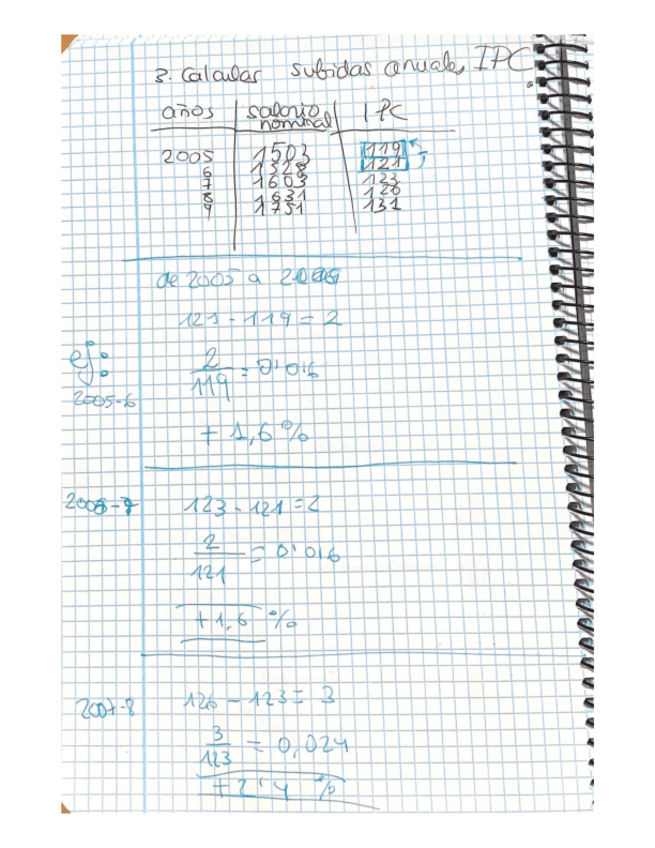 3. Calcular subidas anuales IPC.
años salario nominal IPC
2005 1503 119
6 1528 121
7 1603 123
8 1631 126
9 1751 131
de 2005 a
121 - 119 = 2
ej:
2/119 = 0'016
2005-6
+ 1,6 %
2006-7 123 - 121 = 2
2/121 = 0'016
+1,6 %
2007-8 126 - 123 = 3
3/123 = 0,024
+2'4 %